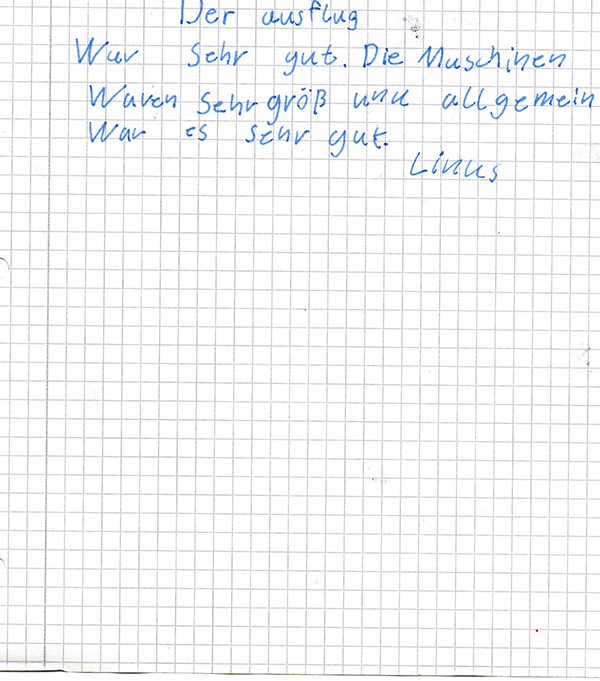 Der ausflug
War sehr gut. Die Maschinen
Waren sehr größ und allgemein
War es sehr gut.
Linus